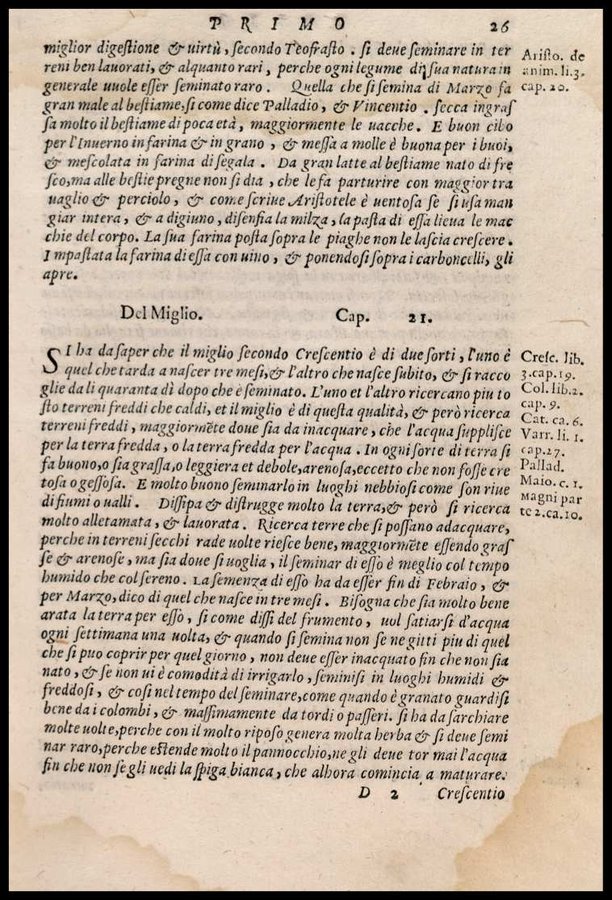 PRIMO 26
miglior digestione & uirtù, secondo Teofrasto. si deue seminare in ter
reni ben lauorati, & alquanto rari, perche ogni legume di sua natura in
generale uuole esser seminato raro. Quella che si semina di Marzo fa
gran male al bestiame, si come dice Palladio, & Vincentio. secca ingras
sa molto il bestiame di poca età, maggiormente le uacche. E buon cibo
per l'Inuerno in farina & in grano, & messa a molle è buona per i buoi,
& mescolata in farina di segala. Da gran latte al bestiame nato di fre
sco, ma alle bestie pregne non si dia, che le fa parturire con maggior tra
uaglio & perciolo, & come scriue Aristotele è uentosa se si usa man
giar intera, & a digiuno, disenfia la milza, la pasta di essa lieua le mac
chie del corpo. La sua farina posta sopra le piaghe non le lascia crescere.
Impastata la farina di essa con uino, & ponendosi sopra i carboncelli, gli
apre.
Aristo. de
anim. li.3.
cap. 20.
Del Miglio. Cap. 21.
SI ha da saper che il miglio secondo Crescentio è di due sorti, l'uno è
quel che tarda a nascer tre mesi, & l'altro che nasce subito, & si racco
glie da li quaranta dì dopo che è seminato. L'uno et l'altro ricercano piu to
sto terreni freddi che caldi, et il miglio è di questa qualità, & però ricerca
terreni freddi, maggiormẽte doue sia da inacquare, che l'acqua supplisce
per la terra fredda, o la terra fredda per l'acqua. In ogni sorte di terra si
fa buono, o sia grassa, o leggiera et debole, arenosa, eccetto che non fosse cre
tosa o gessosa. E molto buono seminarlo in luoghi nebbiosi come son riue
di fiumi o ualli. Dissipa & distrugge molto la terra, & però si ricerca
molto alletamata, & lauorata. Ricerca terre che si possano adacquare,
perche in terreni secchi rade uolte riesce bene, maggiormẽte essendo gras
se & arenose, ma sia doue si uoglia, il seminar di esso è meglio col tempo
humido che col sereno. La semenza di esso ha da esser fin di Febraio, &
per Marzo, dico di quel che nasce in tre mesi. Bisogna che sia molto bene
arata la terra per esso, si come dissi del frumento, uol satiarsi d'acqua
ogni settimana una uolta, & quando si semina non se ne gitti piu di quel
che si puo coprir per quel giorno, non deue esser inacquato fin che non sia
nato, & se non ui è comodità di irrigarlo, seminisi in luoghi humidi &
freddosi, & cosi nel tempo del seminare, come quando è granato guardisi
bene da i colombi, & massimamente da tordi o passeri. si ha da sarchiare
molte uolte, perche con il molto riposo genera molta herba & si deue semi
nar raro, perche estende molto il pannocchio, ne gli deue tor mai l'acqua
fin che non se gli uedi la spiga bianca, che alhora comincia a maturare.
Cresc. lib.
3.cap.19.
Col. lib.2.
cap. 9.
Cat. ca. 6.
Varr. li. 1.
cap.27.
Pallad.
Maio. c. 1.
Magni par
te 2.ca.10.
D 2 Crescentio